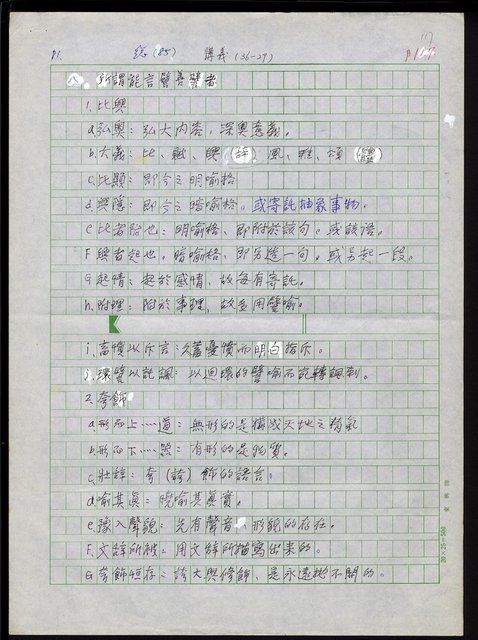 P1. 總(85) 講義(36-37)
八、所謂能言譬善譬者
1.比興
a.弘奧:弘大內容,深奧意義。
b.六義:比、賦、興(辭),風、雅、頌(體)
c.比顯:即今之明喻格
d.興隱:即今之暗喻格。或寄託抽象事物。
e.比者附也:明喻格、即附於該句。或該語。
F.興者起也,暗喻格、即另造一句。或另起一段。
G.起情:起於感情,故每有寄託。
h.附理:附於事理,故多用譬喻。
i.畜憤以斥言:以蓄憂憤而明白指斥。
j.環譬以託諷:以迴環的譬喻而託轉諷刺。
2.夸飾
a.形而上……道:無形的是構成天地之精氣
b.形而下……器:有形的是物質。
c.壯辭:夸(誇)飾的語言。
d.喻其真:曉喻其真實。
e.豫入聲貌:先有聲音、形貌的存在。
F.文辭所被:用文辭所描寫出來的。
G.夸飾恆存:誇大與修飾、是永遠拋不開的。